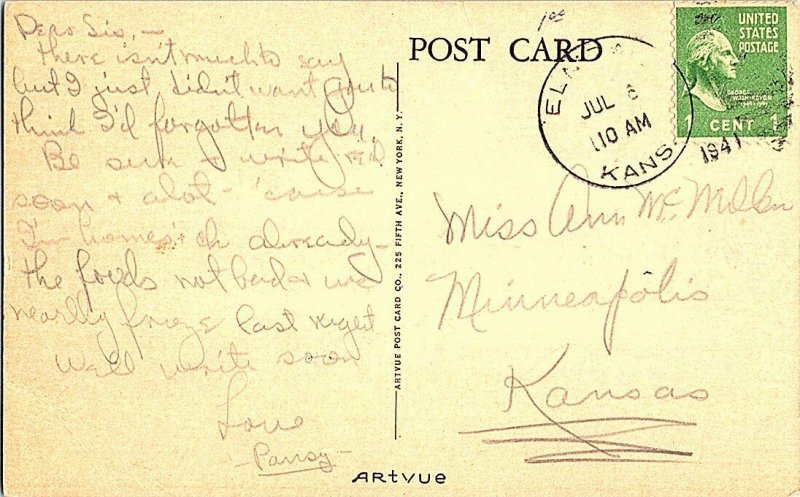 Dear Sis, —
there isn't much to say
but I just didn't want you to
think I'd forgotten you.
Be sure + write
soon + alot - 'cause
I'm homes already -
the food's not bad + we
nearly froze last night
Well write soon
Love
Pansy
POST CARD
ARTVUE POST CARD CO., 225 FIFTH AVE., NEW YORK, N. Y.
ARTVUE
JUL 6
110 AM
KANS.
1941
UNITED
STATES
POSTAGE
GEORGE
WASHINGTON
1 CENT 1
Miss Ann McMillen
Minneapolis
Kansas